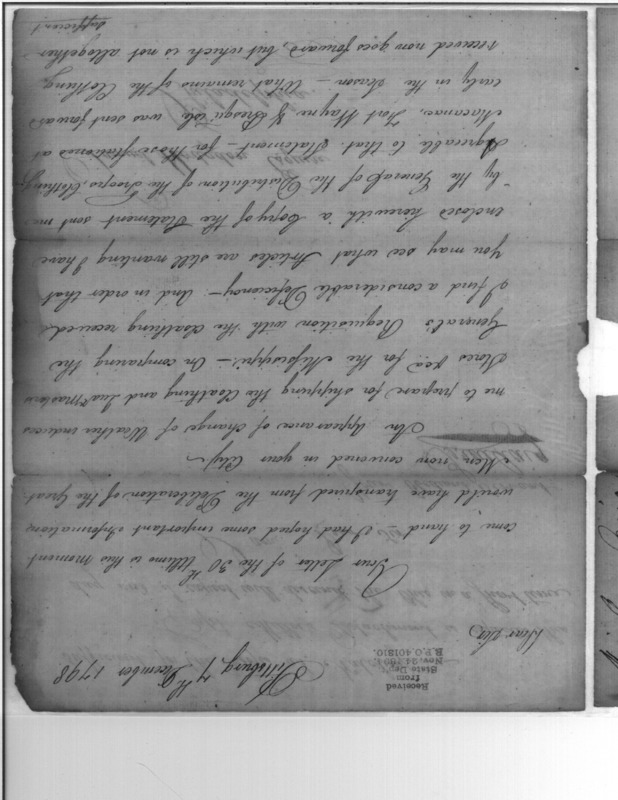 Received
from:
State Dept.
Nov. 24 1904
B.P.O. 401810.
Pittsburg 7th December 1798
Dear Sir
Your Letter of the 30th Ultimo is this moment
come to hand I had hoped some important Information
would have transpired from the Deliberation of the Great
Men now convened in your City.—
An Appearance of Change of Weather induces
me to prepare for shipping the Cloathing and Qua: Masters
Stores for the Missisippi.— On comparing the
General's Requisition with the Cloathing received
I find a considerable Deficiency— And in order that
you may see what Articles are still wanting I have
enclosed herewith a Copy of the Statement sent me
by the General of the Distribution of the Troops Clothing
Agreeable to that Statement— for those stationed at
Macanac, Fort Wayne & Presqu'isle was sent forward
early in the Season— What remains of the Clothing
received now goes forward, but which is not altogether
sufficient